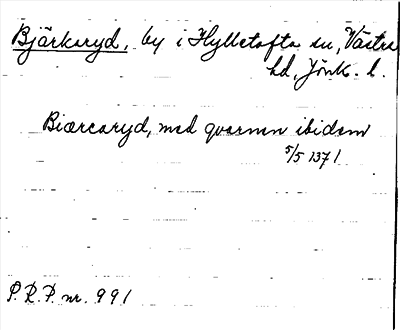 Bjärkaryd, by i Hylletofta sn, Västra
hd, Jönk. l.
Biærcaryd, med qvarnen ibidem
5/5 1371
P.R.P. nr. 991